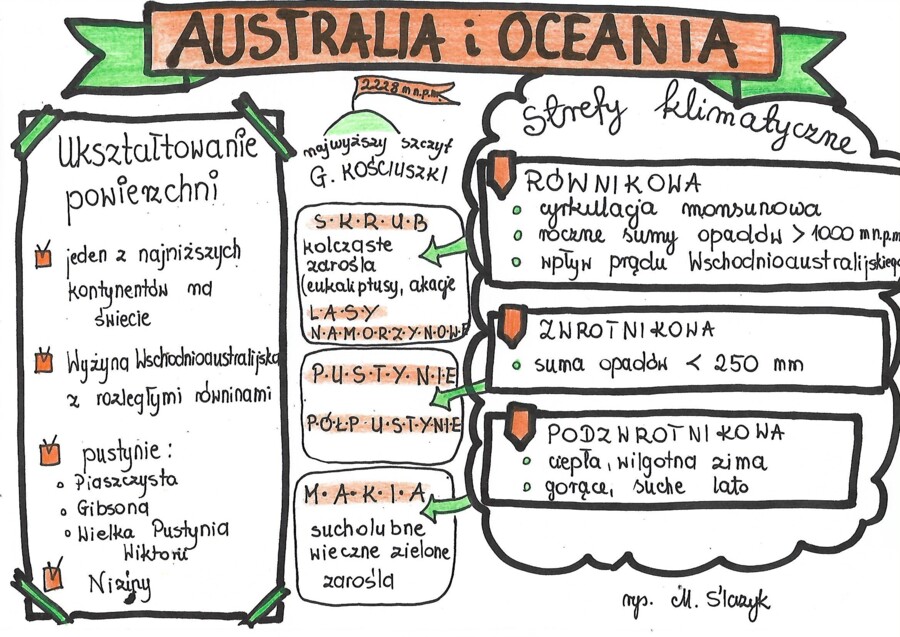 AUSTRALIA i OCEANIA
Ukształtowanie
powierzchni
jeden z najniższych
kontynentów na
świecie
Wyżyna Wschodnioaustralijska
z rozległymi równinami
pustynie:
Piaszczysta
Gibsona
Wielka Pustynia
Wiktorii
Niziny
2228 m n.p.m.
najwyższy szczyt
G. KOŚCIUSZKI
S·K·R·U·B
kolczaste
zarośla
(eukaliptusy, akacje
L·A·S·Y
N·A·M·O·R·Z·Y·N·O·W·E
P·U·S·T·Y·N·I·E
P·Ó·Ł·P·U·S·T·Y·N·I·E
M·A·K·I·A
sucholubne
wieczne zielone
zarośla
Strefy klimatyczne
RÓWNIKOWA
cyrkulacja monsunowa
roczne sumy opadów > 1000 m n.p.m
wpływ prądu Wschodnioaustralijskiego
ZWROTNIKOWA
suma opadów < 250 mm
PODZWROTNIKOWA
ciepła, wilgotna zima
gorące, suche lato
rys. M. Ślazyk